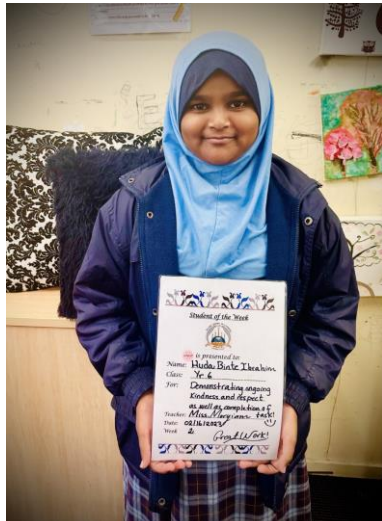 Student of the Week
is presented to:
Name: Huda Binte Ibrahim
Class: Yr 6
For: Demonstrating ongoing
Kindness and respect
as well as completion of
Teacher: Miss Maryiam task!
Date: 02/16/2023
Week 2
Great Work!